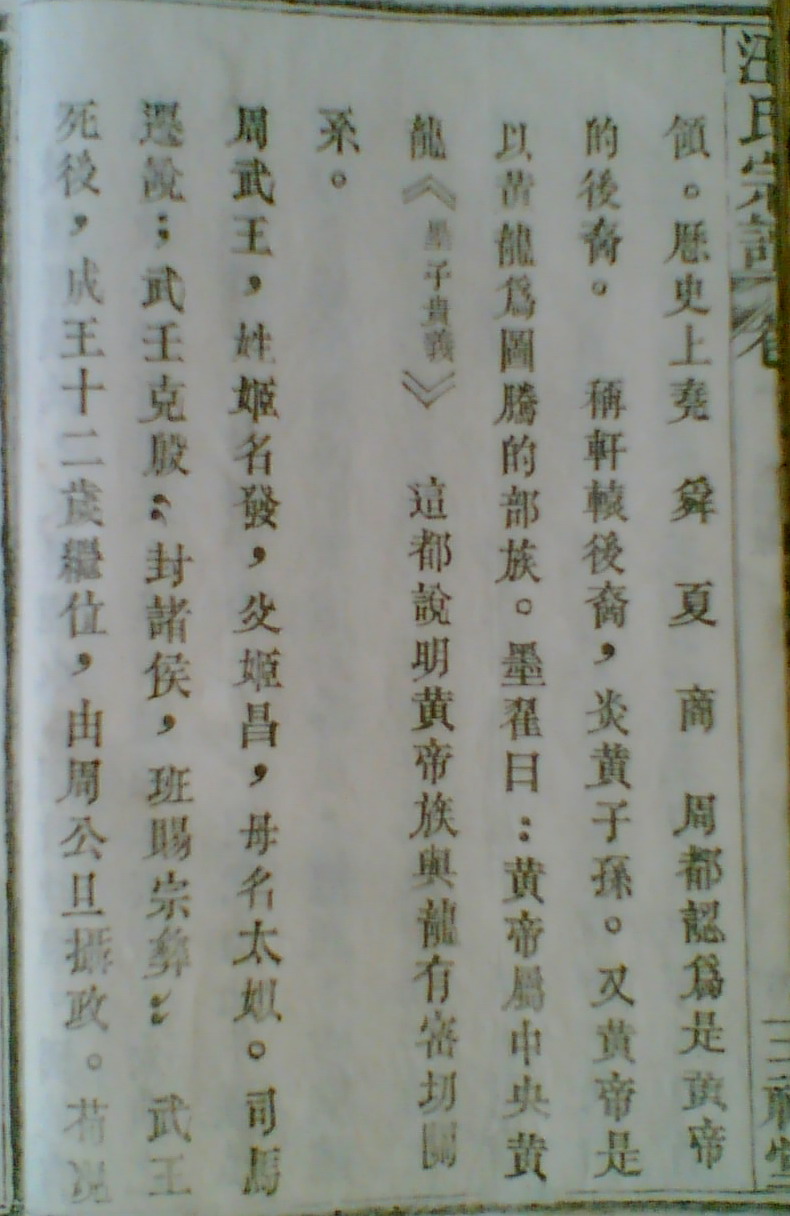 汪氏宗譜
領。歷史上堯 舜 夏 商 周都認爲是黃帝
的後裔。 稱軒轅後裔，炎黃子孫。又黃帝是
以黃龍爲圖騰的部族。墨翟曰：黃帝屬中央黃
龍《墨子貴義》 這都說明黃帝族與龍有密切關
系。
周武王，姓姬名發，父姬昌，母名太姒。司馬
遷說；武王克殷：封諸侯，班賜宗彝： 武王
死後，成王十二歲繼位，由周公旦攝政。荀況